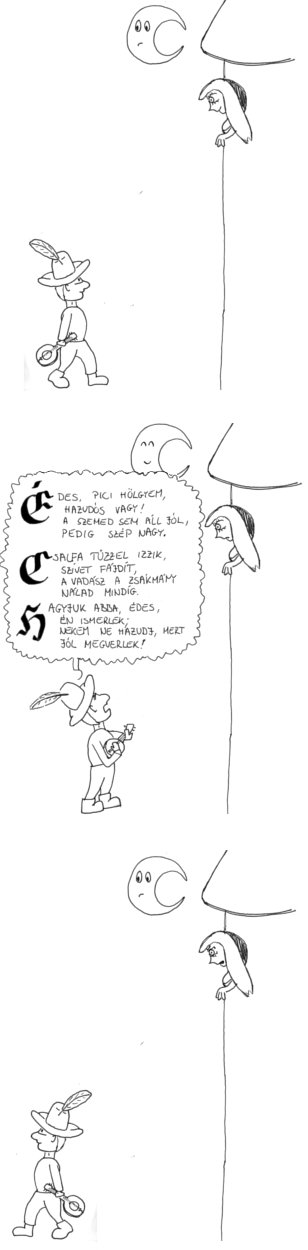 ÉDES, PICI HÖLGYEM,
HAZUDÓS VAGY!
A SZEMED SEM ÁLL JÓL,
PEDIG SZÉP NAGY.
CSALFA TŰZZEL IZZIK,
SZÍVET FÁJDÍT,
A VADÁSZ A ZSÁKMÁNY
NÁLAD MINDIG.
HAGYJUK ABBA, ÉDES,
ÉN ISMERLEK;
NEKEM NE HAZUDJ, MERT
JÓL MEGVERLEK!